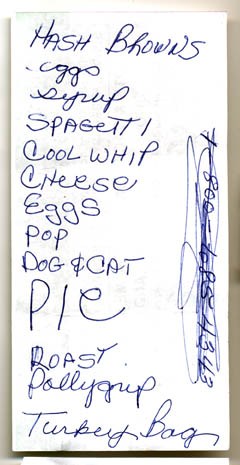 HASH BROWNS
eggs
syrup
SPAGETTI
COOL WHIP
CHEESE
EggS
POP
DOG & CAT
PIE
ROAST
Pollygrip
Turkey Bag
1-800-685-4343